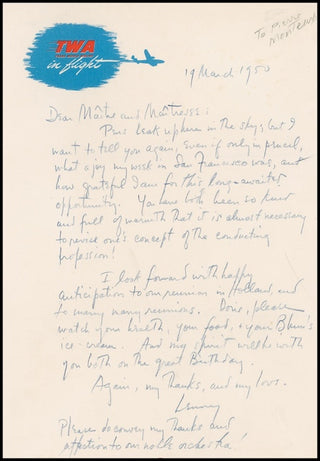 TWA
in flight
To Pierre
Monteux
19 March 1950
Dear Maître and Maîtresse:
Pens leak up here in the sky, but I
want to tell you again, even if only in pencil,
what a joy my week in San Francisco was, and
how grateful I am for this long-awaited
opportunity. You have both been so kind
and full of warmth that it is almost necessary
to revise one's concept of the conducting
profession!
I look forward with happy
anticipation to our reunion in Holland, and
to many many reunions. Doris, please
watch your health, your food, + your Blum's
ice-cream. And my spirit will be with
you both on the great Birthday.
Again, my thanks, and my love.
Lenny
Please do convey my thanks and
affection to our noble orchestra!